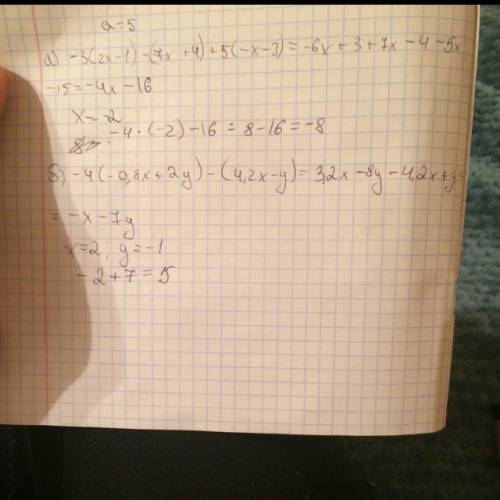 a=5
а) -3(2x-1) -(7x+4)+5(-x-3)= -6x+3+7x-4-5x
-15=-4x-16
x=-2
-4·(-2)-16=8-16=-8
б) -4(-0,8x+2y)-(4,2x-y)=3,2x-8y-4,2x+y=
=-x-7y
x=2; y=-1
-2+7=5